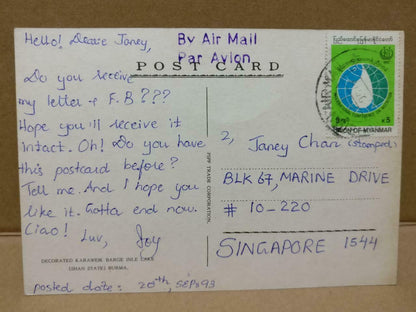 Hello! Dearie Janey,
By Air Mail
Par Avion
POST CARD
Do you receive
my letter & F.B???
Hope you'll receive it
intact. Oh! Do you have
this postcard before?
Tell me. And I hope you
like it. Gotta end now.
Ciao!
Luv, Joy
DECORATED KARAWEIK BARGE INLE LAKE
(SHAN STATE) BURMA.
posted date: 20th, SEP, 93
PIPP TRADE CORPORATION.
UNION OF MYANMAR
K5
2, Janey Chan (stamped)
BLK 67, MARINE DRIVE
# 10-220
SINGAPORE 1544